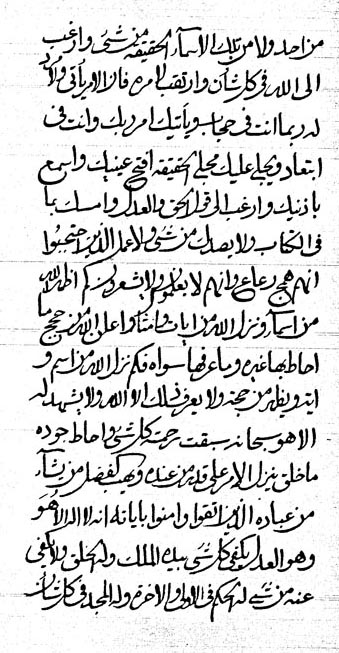 من احد ولا من تلك الاسماء الحقيقة من شیء وارغب
الی الله فی كل شأن وارتقب لامره فان الامر یأتی ولا مرد
له ربما انت فی حجاب ویأتیك امر ربك وانت فی
ابتعاد ویجلی علیك مجلی الحقیقة افتح عینیك واسمع
باذنیك وارغب الی قول الحق والعدل وامسك بما
فی الكتاب ولا یصدك من شیء ولا عمل الذین احتجبوا
انهم همج رعاع وانهم لا یعقلون ولا یشعرون كم اظهر الله
من اسماء ونزل الله من آیات شامتا واعلن الله من حجج ما
احاط بها غیره وما عرفها سواه فكم نزل الله من اسم و
آیة ویظهر من حجة ولا یعرف ذلك الا الله ولا یشهد له
الا هو سبحانه سبقت رحمته كل شیء واحاط جوده
ما خلق ینزل الامر علی قدر من عنده ویهب كیف من یشاء
من عباده الذین اتقوا وامنوا بایاته انه لا اله الا هو
وهو العدل یكفی كل شیء بیده الملك وله الخلق ولا یكفی
عنه من شیء له الحكم فی الاولی والآخرة وله المجد فی كل شأن